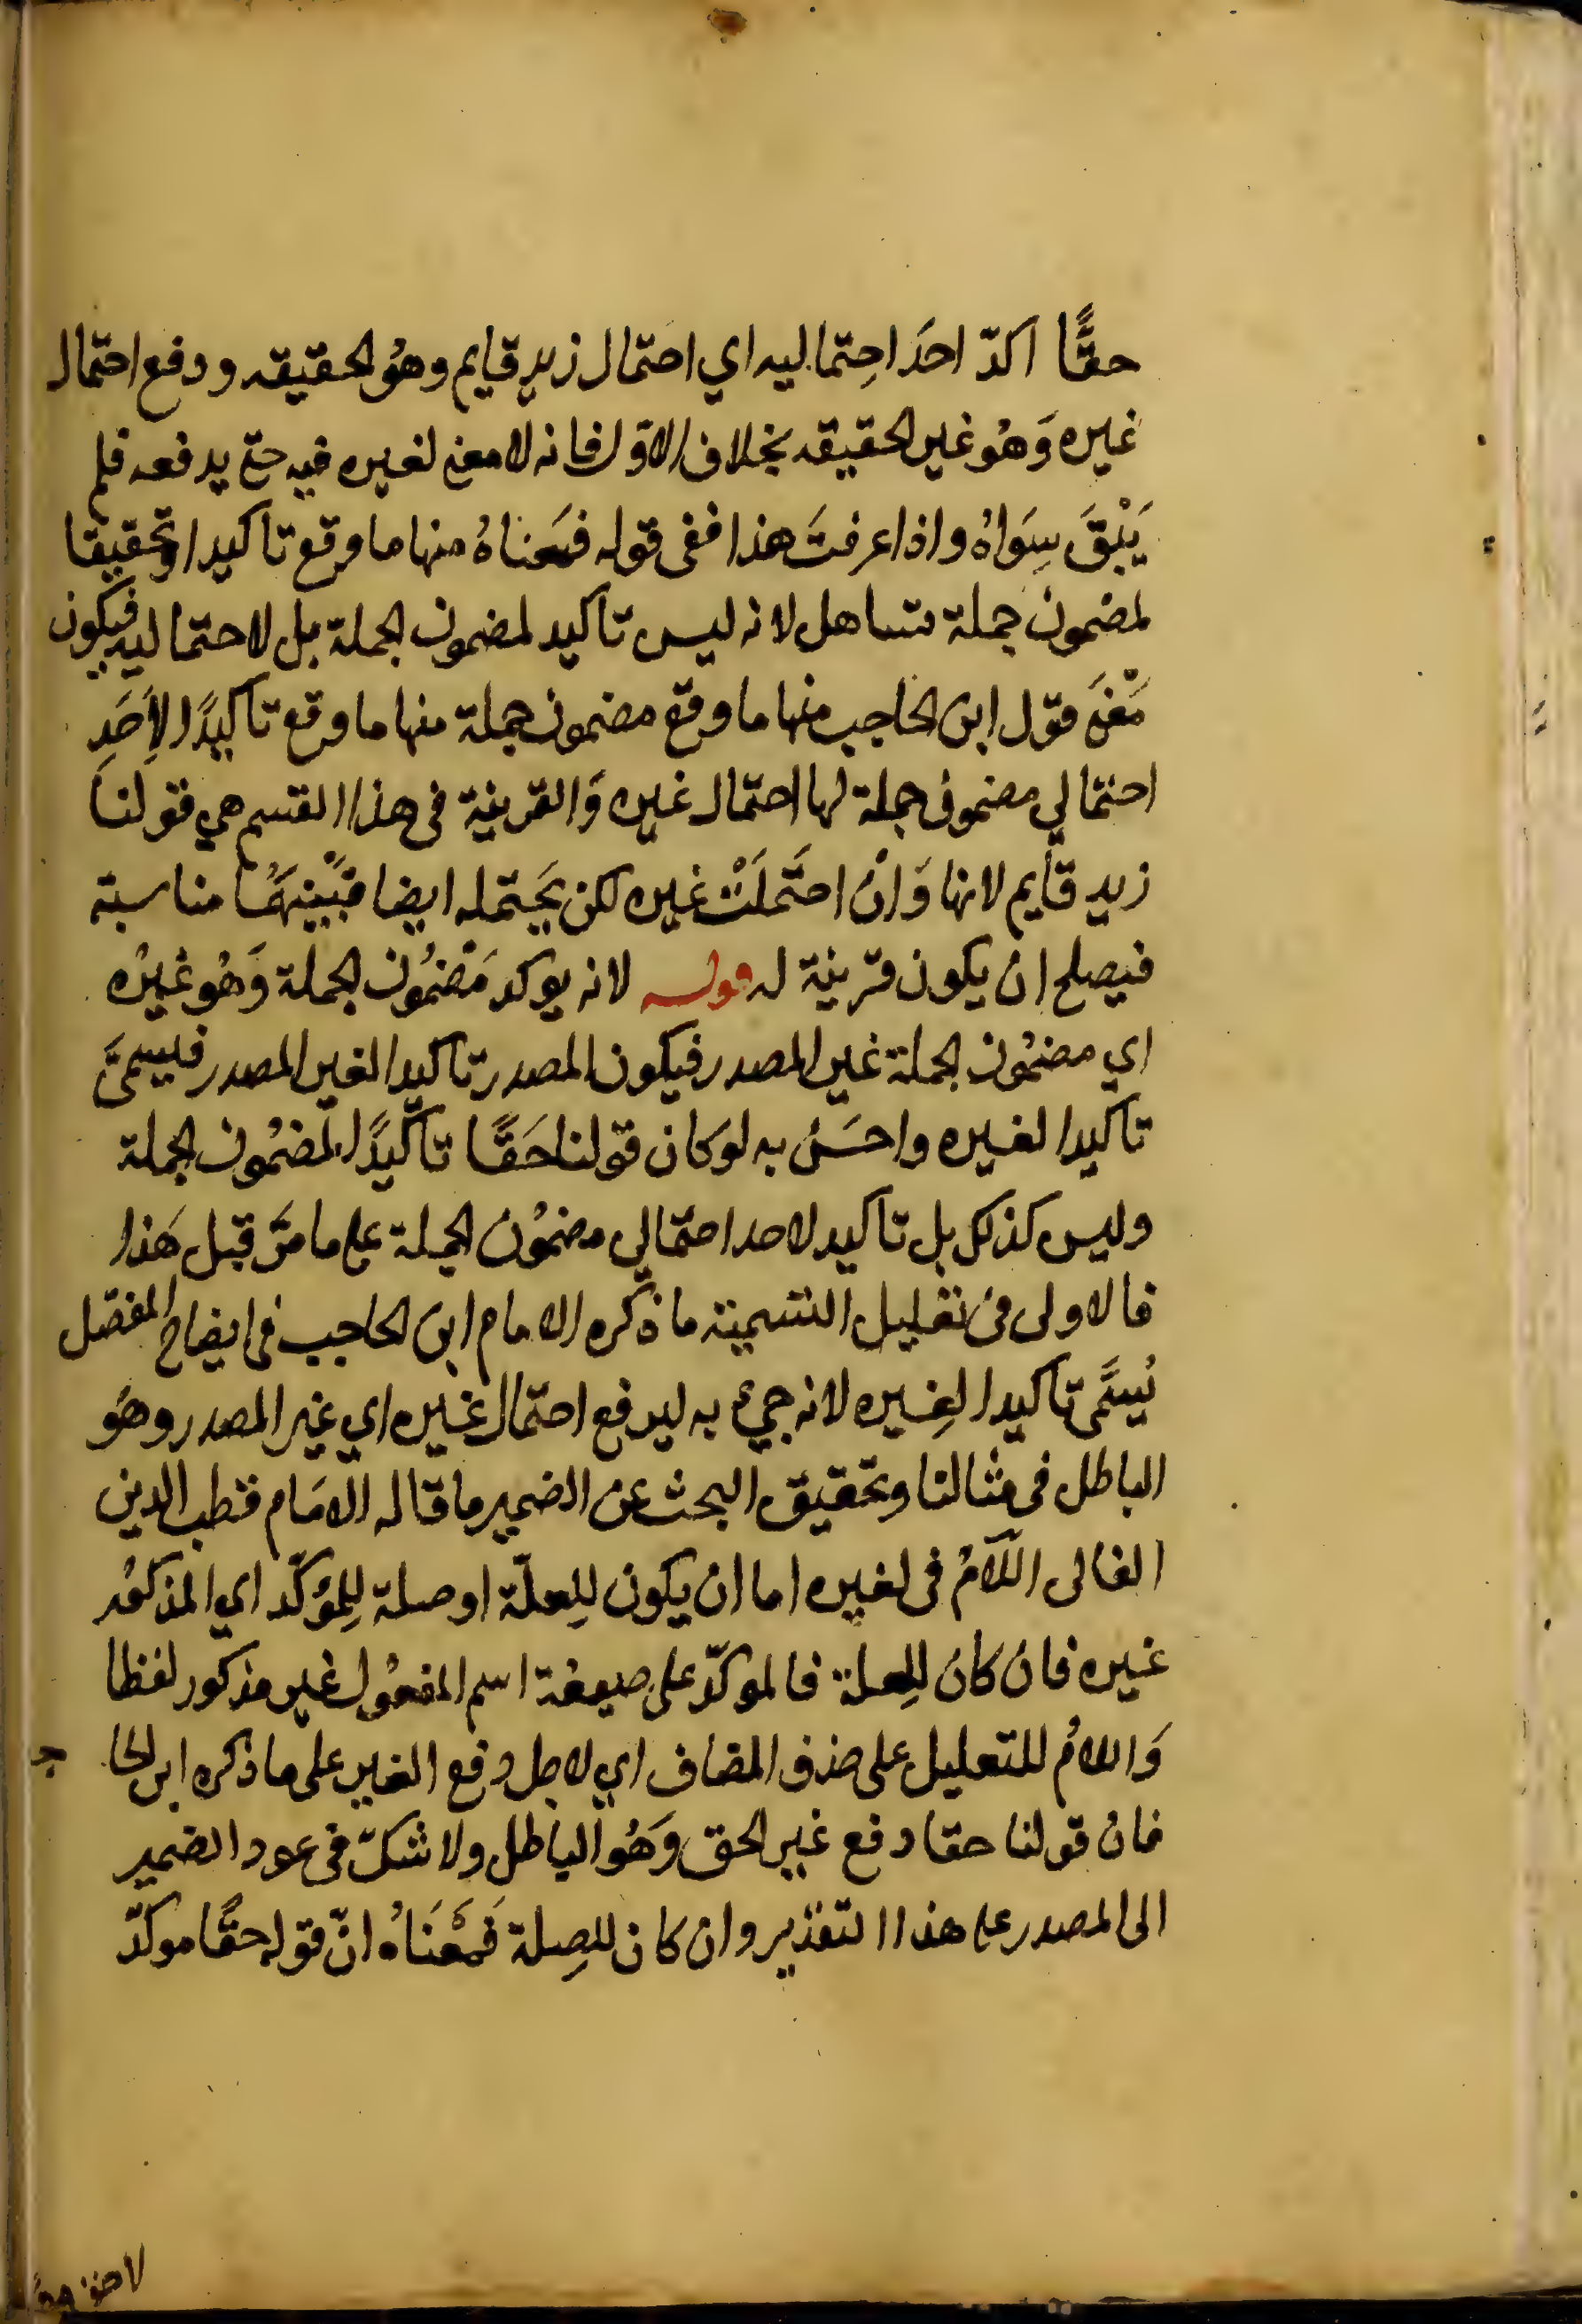 حقًّا اكدّ احَد احِتماليه اي احتمال زيد قايم وهُو الحقيقه ودفع احتمال
غيره وَهُو غير الحقيقه بخلاف الاوّل فانه لا معنى لغيره فيه حتى يدفعه فلم
يَبْقَ سِوَاهُ واذا عرفتَ هذا ففى قوله فمعناهُ منها ما وقع تاكيدا وتحقيقا
لمضمون جملة تساهل لانه ليس تاكيد لمضمون الجملة بل لاحتماليه فيكون
مَعْنَى قول ابن الحاجب منها ما وقع مضمون جملة منها ما وقع تاكيدًا لاَِحَدِ
احتمالي مضمون جملة لها احتمال غيره وَالقرينة فى هذا القسم هي قولنا
زيد قايم لانها وَانْ احتَمَلَتْ غيره لكن يَحتمله ايضا فبَيْنهَُما مناسبة
فيصلح ان يكون قرينة له قوله لانه يوكد مَضمُون الجملة وَهُو غيرُه
اي مضمُون الجملة غير المصدر فيكون المصدر تاكيدا لغير المصدر فيسمىَّ
تاكيدا لغيره واحسَنُ به لو كان قولنا حَقًّا تاكيدًا لمضمُون الجملة
وليس كذلك بل تاكيد لاحد احتمالي مضمُون الجملة على ما مَرَّ قبل هَذا
فالاولى فى تعليل التسمية ما ذكره الامام ابن الحاجب فى ايضاح المفصّل
يُسَمَّى تاكيدا لِغيره لانه جيء به ليدفع احتمال غيره اي غير المصدر وهُو
الباطل فى مثالنا وتحقيق البحث عن الضمير ما قاله الامَام قطب الدين
الفالى اللاّمُ فى لغيره اما ان يكون لِلعلّة او صلة لِلمُؤكّد اي المذكور
غيره فان كان لِلعلة فالموكدّ على صيغة اسم المفعُول غير مذكور لفظا
وَاللامُ للتعليل على حذف المضاف اي لاجل دفع الغير على ما ذكره ابن الحاجب
فان قولنا حقا دفع غير الحق وَهُو الباطل ولا شكّ فى عود الضمير
الى المصدر على هذا التقدير وان كان للصِلة فَمعْنَاهُ انّ قوله حقًا موكدّ